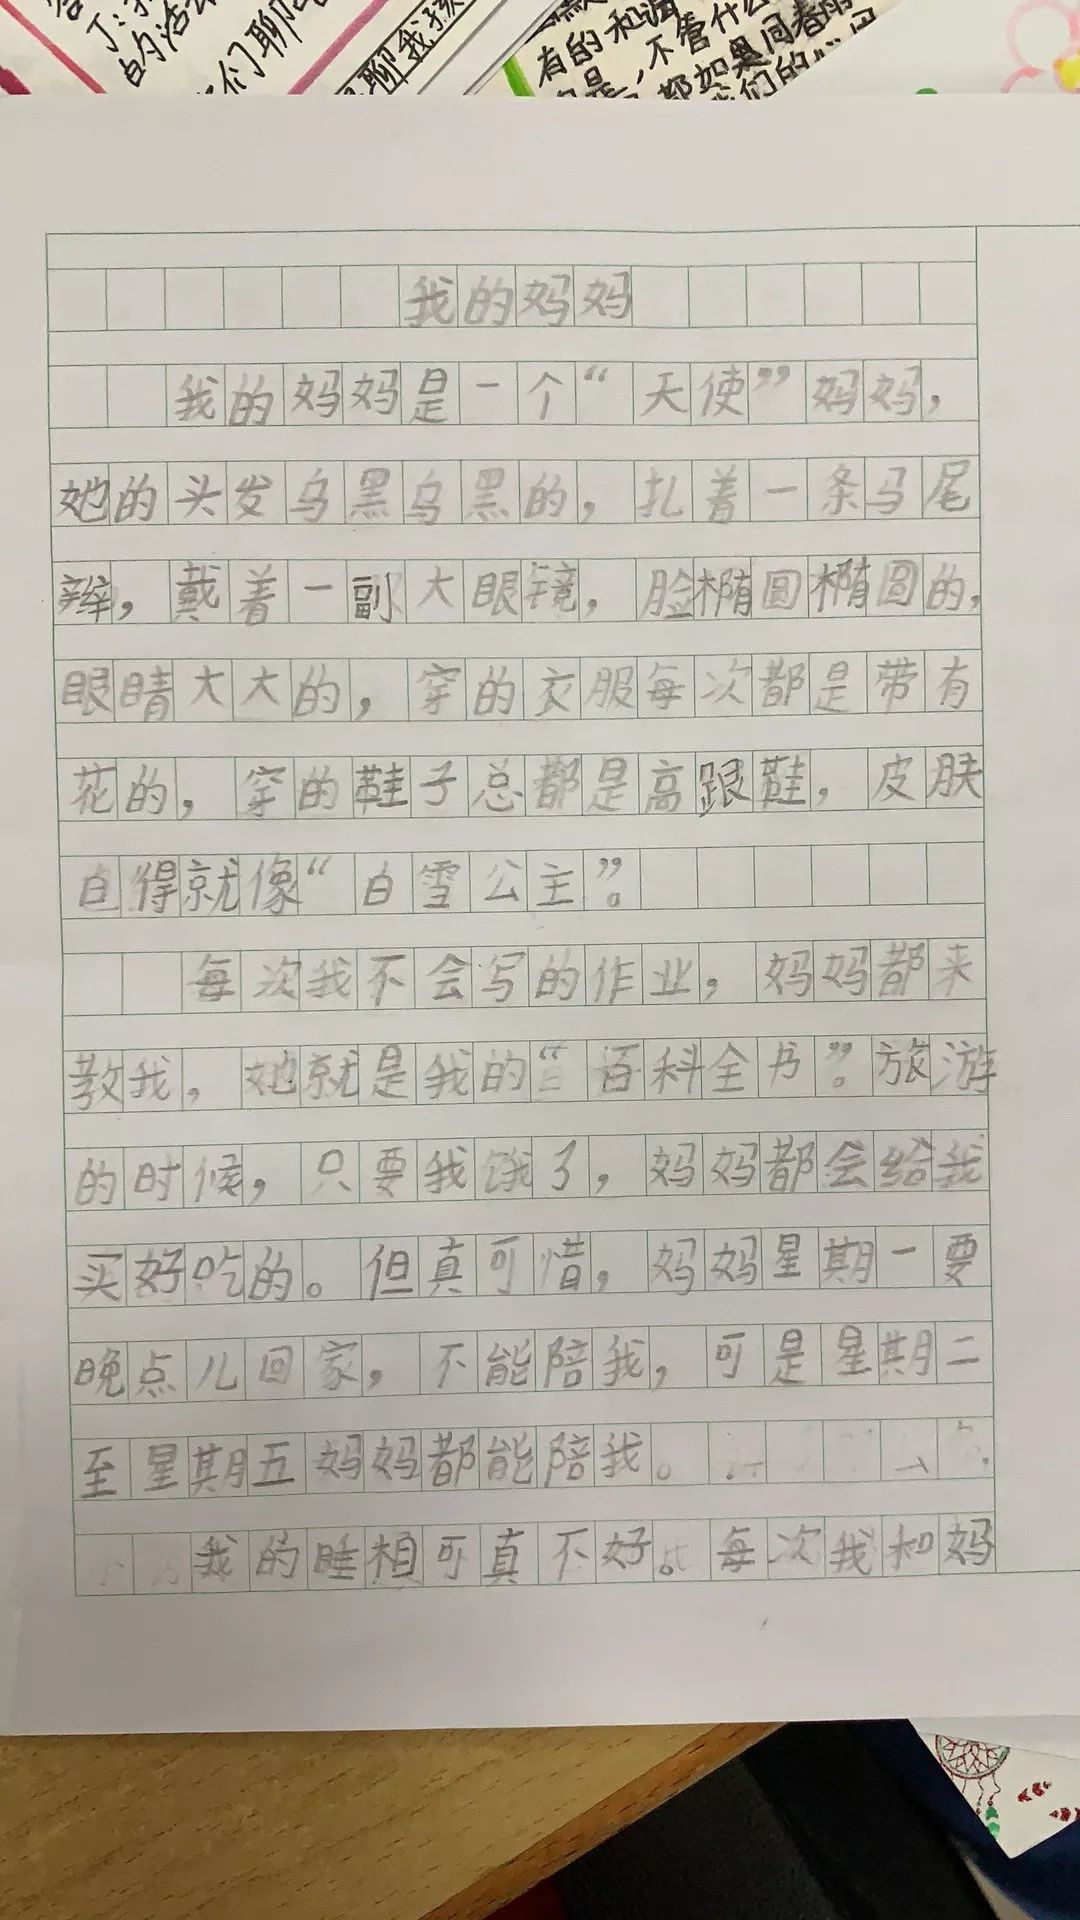 我的妈妈
我的妈妈是一个“天使”妈妈，
她的头发乌黑乌黑的，扎着一条马尾
辫，戴着一副大眼镜，脸椭圆椭圆的，
眼睛大大的，穿的衣服每次都是带有
花的，穿的鞋子总都是高跟鞋，皮肤
白得就像“白雪公主”。
每次我不会写的作业，妈妈都来
教我，她就是我的“百科全书”。旅游
的时候，只要我饿了，妈妈都会给我
买好吃的。但真可惜，妈妈星期一要
晚点儿回家，不能陪我，可是星期二
至星期五妈妈都能陪我。
我的睡相可真不好。每次我和妈